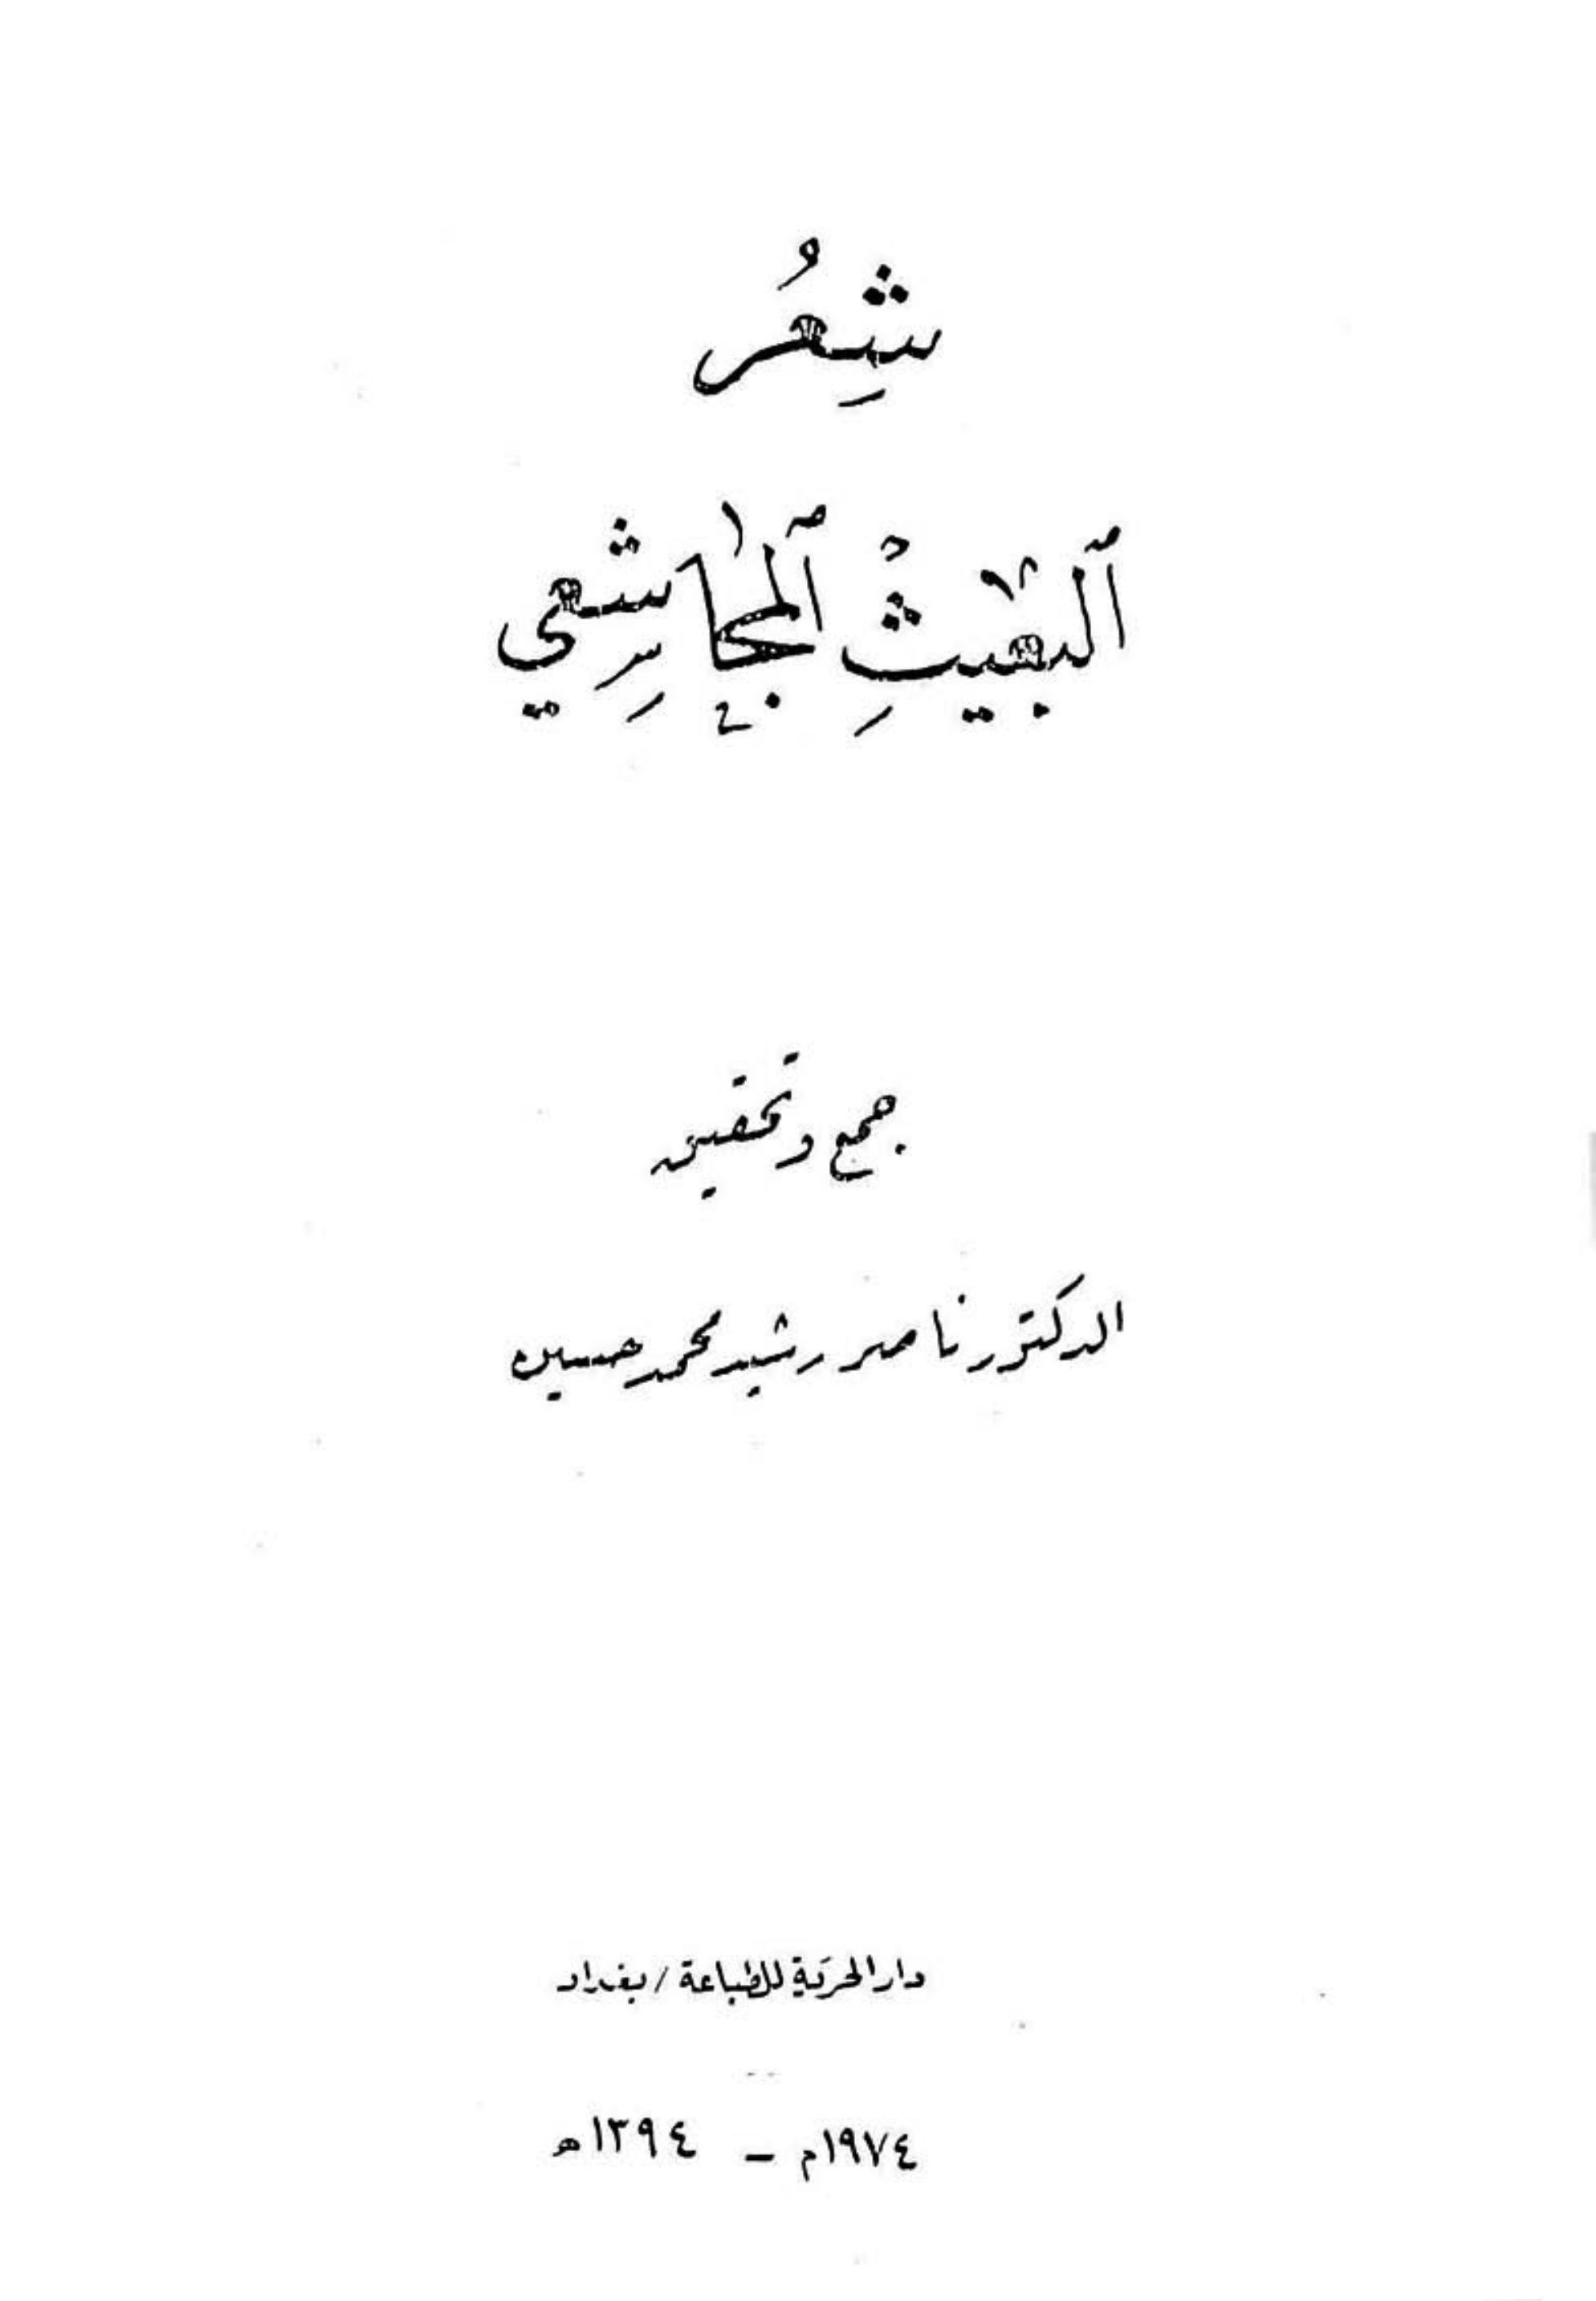 شِعْرُ
ٱلْبَعِيثِ ٱلْمُجَاشِعِي
جمع وتحقيق
الدكتور ناصر رشيد محمد حسين
دار الحرية للطباعة / بغداد
١٩٧٤م – ١٣٩٤ه